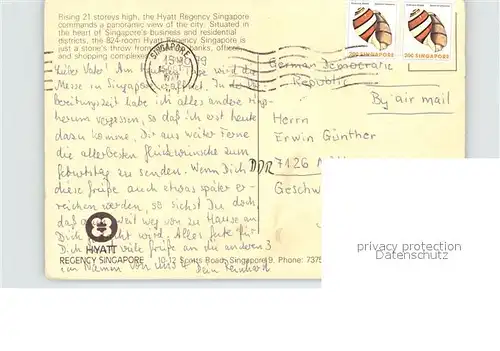 Rising 21 storeys high, the Hyatt Regency Singapore
commands a panoramic view of the city. Situated in
the heart of Singapore's business and residential
districts, the 824-room Hyatt Regency Singapore is
just a stone's throw from banks, offices
and shopping complexes.
SINGAPORE
SINGAPORE
SINGAPORE
German Democratic
Republic
By air mail
Herrn
Erwin Günther
DDR 7126
Geschw
Lieber Vater! Am wird die
Messe in Singapore eröffnet. In der Vor-
bereitungszeit habe ich alles andere
herum vergessen, so daß ich erst heute
dazu komme, Dir aus weiter Ferne
die allerbesten Glückwünsche zum
Geburtstag zu senden. Wenn Dich
diese Grüße auch etwas später er-
reichen werden, so siehst Du doch,
daß weit weg von zu Hause an
Dich wird. Alles Gute für
Dich viele Grüße an die anderen 3
im Namen von uns 4 Dein Reinhard
HYATT
REGENCY SINGAPORE 10-12 Scotts Road, Singapore 9. Phone: 7375
privacy protection
Datenschutz